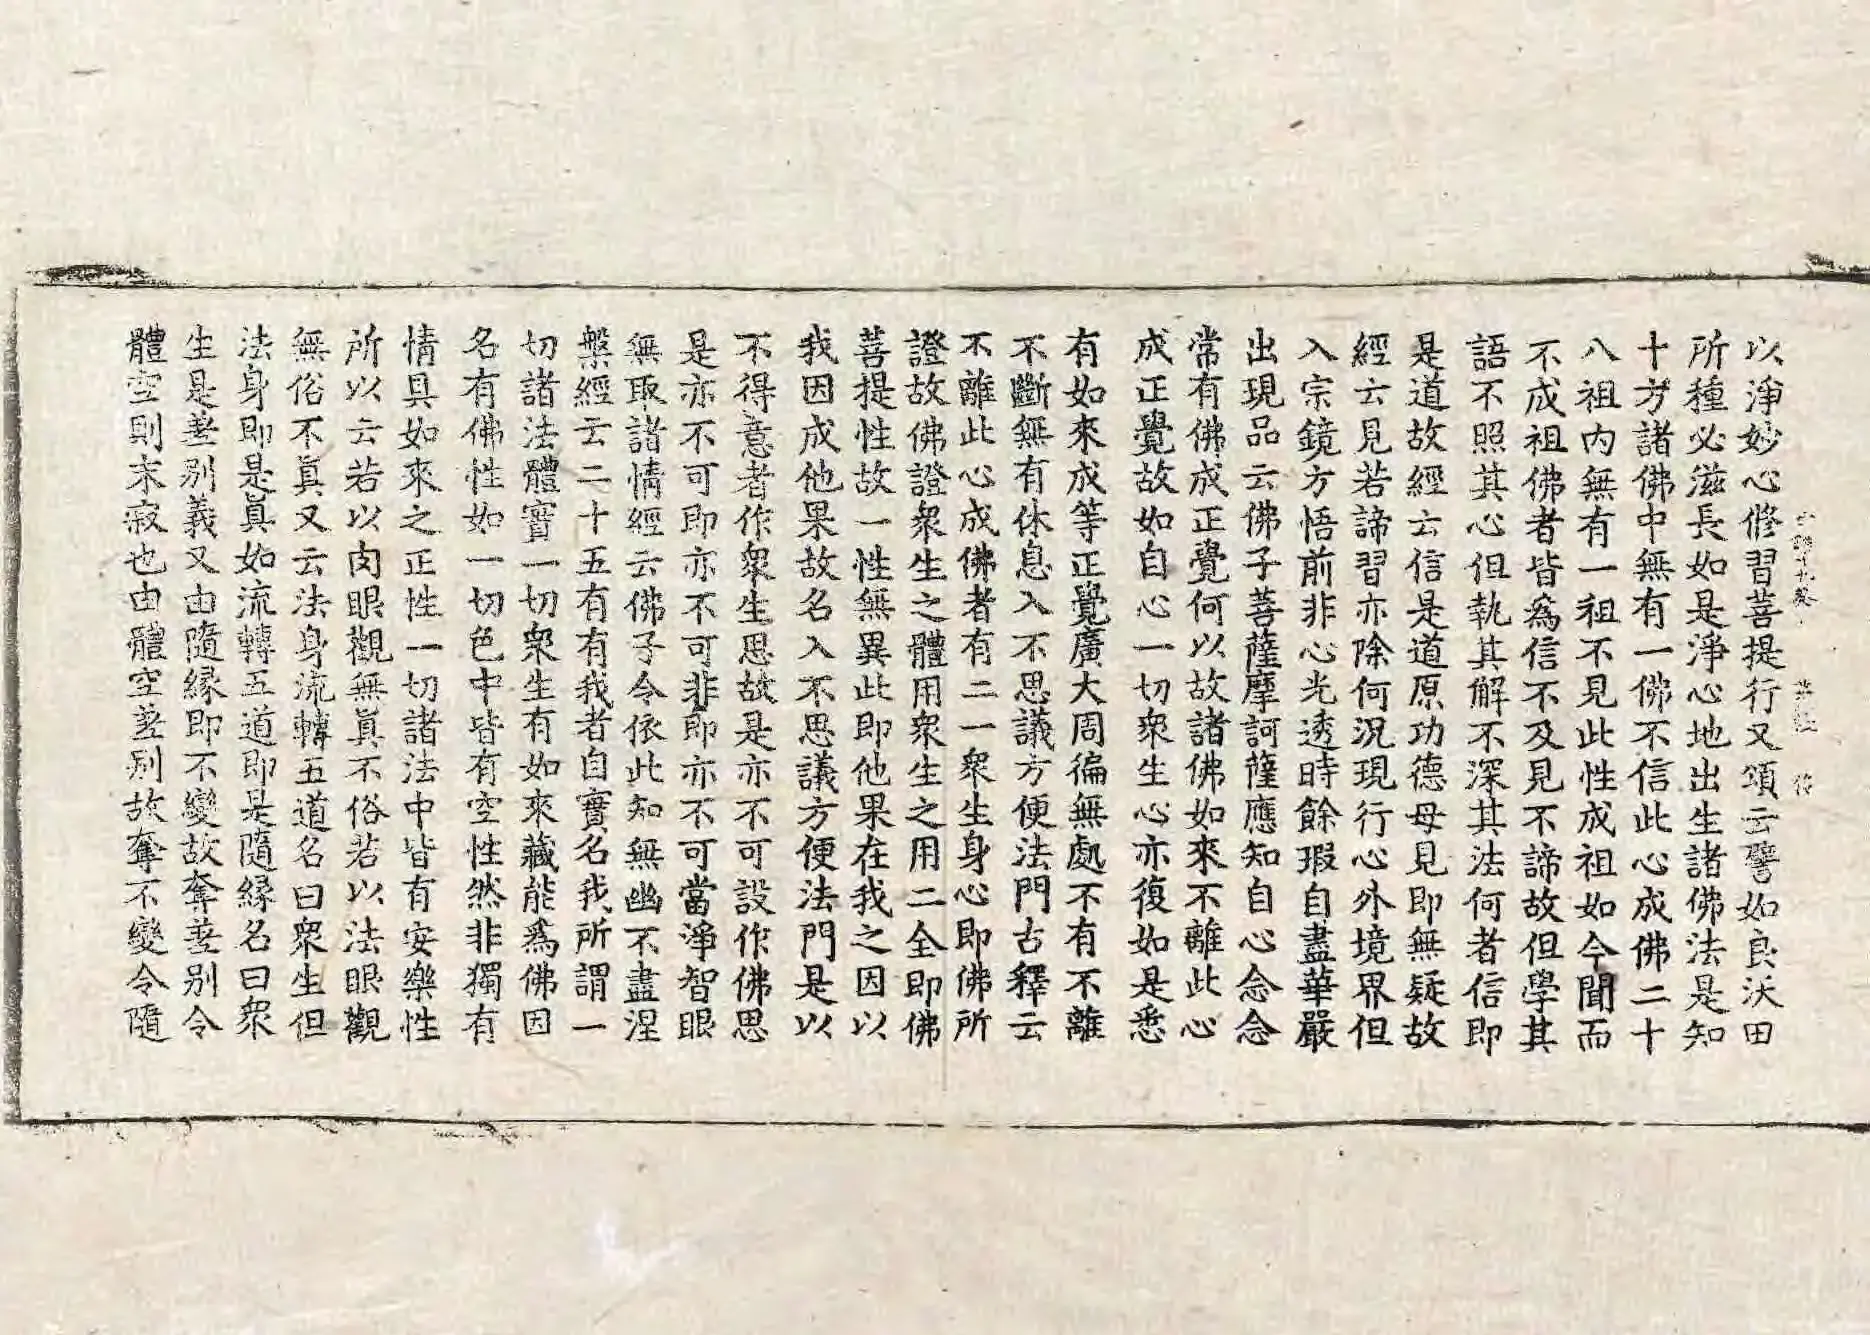 以淨妙心修習菩提行又頌云譬如良沃田
所種必滋長如是淨心地出生諸佛法是知
十方諸佛中無有一佛不信此心成佛二十
八祖內無有一祖不見此性成祖如今聞而
不成祖佛者皆爲信不及見不諦故但學其
語不照其心但執其解不深其法何者信即
是道故經云信是道原功德母見即無疑故
經云見若諦習亦除何況現行心外境界但
入宗鏡方悟前非心光透時餘瑕自盡華嚴
出現品云佛子菩薩摩訶薩應知自心念念
常有佛成正覺何以故諸佛如來不離此心
成正覺故如自心一切衆生心亦復如是悉
有如來成等正覺廣大周徧無處不有不離
不斷無有休息入不思議方便法門古釋云
不離此心成佛者有二一衆生身心即佛所
證故佛證衆生之體用衆生之用二全即佛
菩提性故一性無異此即他果在我之因以
我因成他果故名入不思議方便法門是以
不得意者作衆生思故是亦不可設作佛思
是亦不可即亦不可非即亦不可當淨智眼
無取諸情經云佛子令依此知無幽不盡涅
槃經云二十五有有我者自實名我所謂一
切諸法體實一切衆生有如來藏能爲佛因
名有佛性如一切色中皆有空性然非獨有
情具如來之正性一切諸法中皆有安樂性
所以云若以肉眼觀無真不俗若以法眼觀
無俗不真又云法身流轉五道名曰衆生但
法身即是真如流轉五道即是隨緣名曰衆
生是差別義又由隨緣即不變故奪差別令
體空則末寂也由體空差別故奪不變令隨